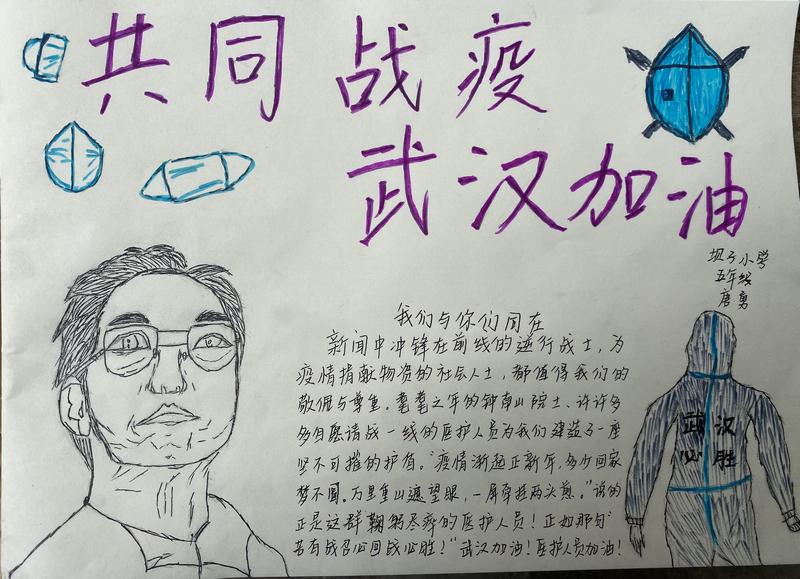 共同战疫
武汉加油
坝子小学
五年级
唐勇
我们与你们同在
新闻中冲锋在前线的逆行战士，为
疫情捐献物资的社会人士，都值得我们的
敬佩与尊重。耄耋之年的钟南山院士、许许多
多自愿请战一线的医护人员为我们建造了一座
坚不可摧的护盾。“疫情渐起正新年，多少回家
梦不圆。万里重山遮望眼，一屏牵挂两头煎。”说的
正是这群鞠躬尽瘁的医护人员！正如那句“
若有战召必回战必胜！”武汉加油！医护人员加油！
武汉
必胜